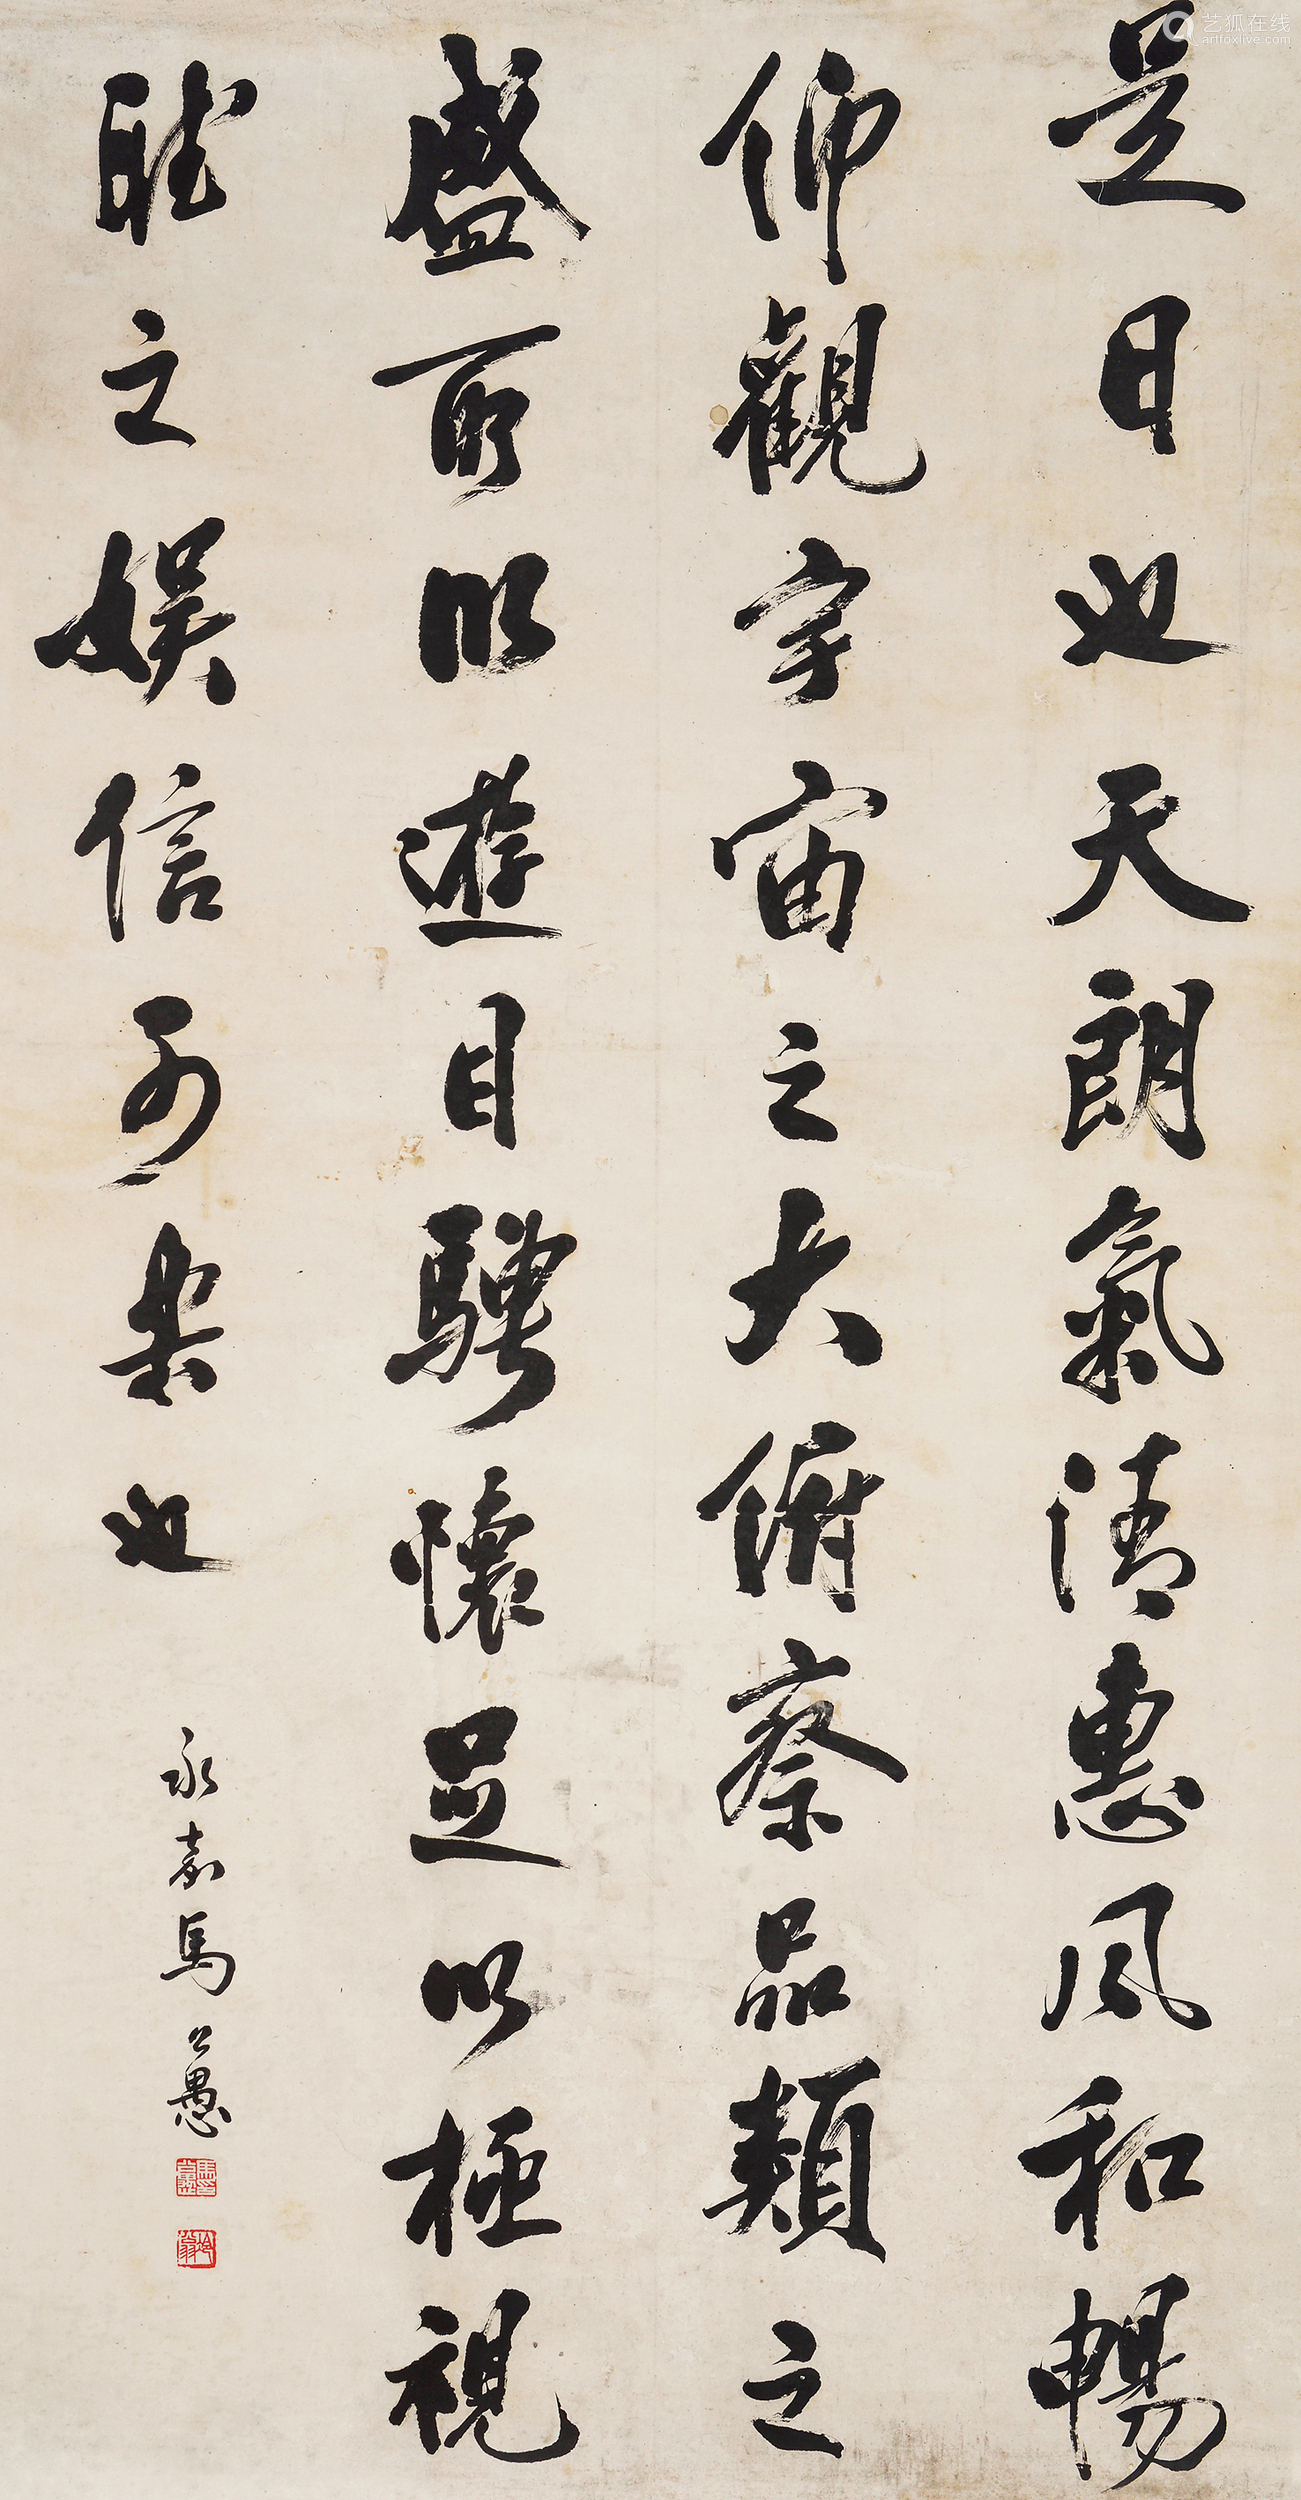 是日也天朗氣清惠風和暢
仰觀宇宙之大俯察品類之
盛所以遊目騁懷足以極視
聽之娛信可樂也
永嘉馬公愚
艺狐在线
artfoxlive.com